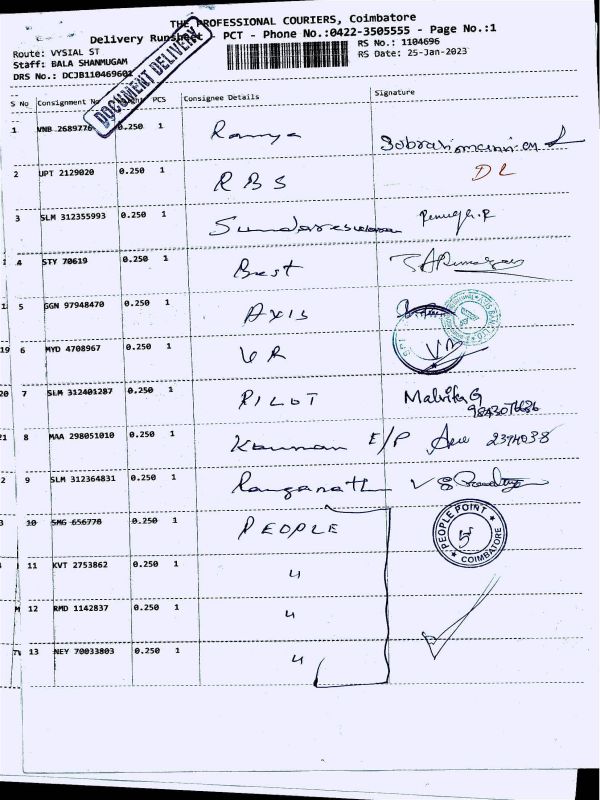 THE PROFESSIONAL COURIERS, Coimbatore
Delivery Runsheet - PCT - Phone No.:0422-3505555 - Page No.:1
Route: VYSIAL ST
RS No.: 1104696
Staff: BALA SHANMUGAM
RS Date: 25-Jan-2023
DRS No.: DCJB110469601
DOCUMENT DELIVERY
S No Consignment No PCS Consignee Details Signature
1 VNB 2689776 0.250 1 Ramya
2 UPT 2129020 0.250 1 RBS DL
3 SLM 312355993 0.250 1 Sundareswaran
4 STY 70619 0.250 1 Best
5 GGN 97948470 0.250 1 AXIS
6 MYD 4708967 0.250 1 VR
7 SLM 312401287 0.250 1 PILOT Malvika G
8 MAA 298051010 0.250 1 Kannan E/P
9 SLM 312364831 0.250 1 Ranganath
10 SMG 656778 0.250 1 PEOPLE PEOPLE POINT COIMBATORE
11 KVT 2753862 0.250 1 "
12 RMD 1142837 0.250 1 "
13 NEY 70033803 0.250 1 "